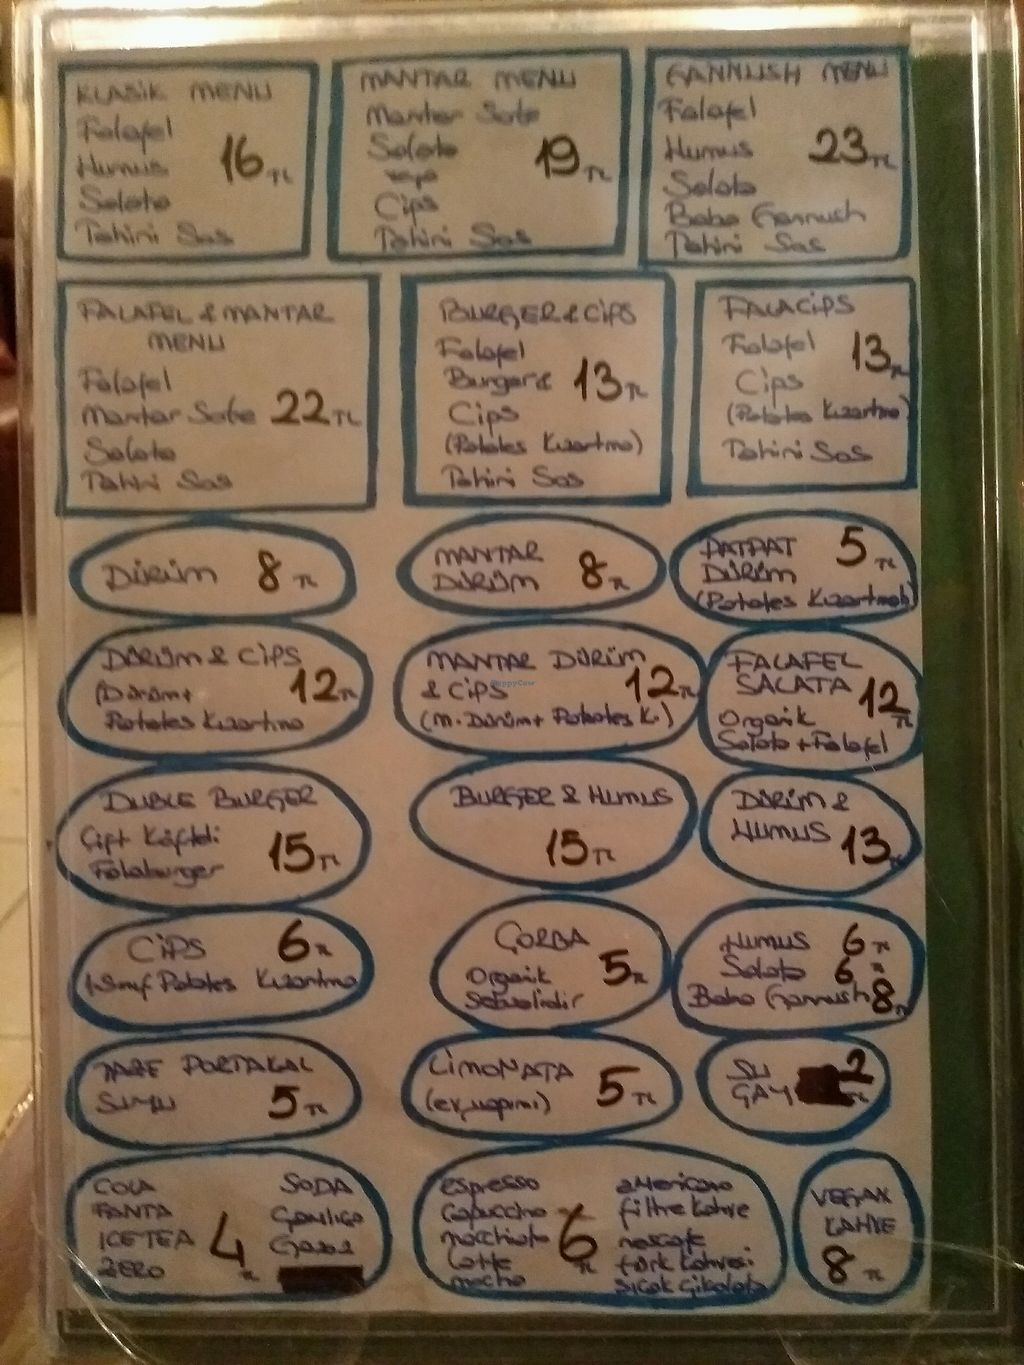 KLASİK MENU
Falafel
Humus
Salata
Tahini Sos
16 TL
MANTAR MENU
Mantar Sote
Salata
Cips
Tahini Sos
19 TL
GANNUSH MENU
Falafel
Humus
Salata
Baba Gannush
Tahini Sos
23 TL
FALAFEL & MANTAR
MENU
Falafel
Mantar Sote 22 TL
Salata
Tahini Sos
BURGER & CİPS
Falafel
Burger & 13 TL
Cips
(Patates Kızartma)
Tahini Sos
FALACİPS
Falafel 13 TL
Cips
(Patates Kızartma)
Tahini Sos
DÜRÜM 8 TL
MANTAR
DÜRÜM 8 TL
PATPAT 5 TL
DÜRÜM
(Patates Kızartmalı)
DÜRÜM & CİPS
(Dürüm + 12 TL
Patates Kızartma
MANTAR DÜRÜM
& CİPS 12 TL
(M. Dürüm + Patates K.)
FALAFEL
SALATA 12 TL
Organik
Salata + Falafel
DUBLE BURGER
Çift Köfteli
Falaburger 15 TL
BURGER & HUMUS
15 TL
DÜRÜM &
HUMUS 13 TL
CİPS 6 TL
1.Sınıf Patates Kızartma
ÇORBA
Organik 5 TL
Sebzelidir
HUMUS 6 TL
Salata 6 TL
Baba Gannush 8 TL
TAZE PORTAKAL
SUYU 5 TL
LİMONATA
(ev yapımı) 5 TL
SU
ÇAY 2 TL
COLA
FANTA
ICE TEA
ZERO
4 TL
SODA
Gazoz
espresso
Capuccino
macchiato
Latte
mocha
6 TL
americano
filtre kahve
nescafe
türk kahvesi
sıcak çikolata
VEGAN
KAHVE
8 TL
HappyCow